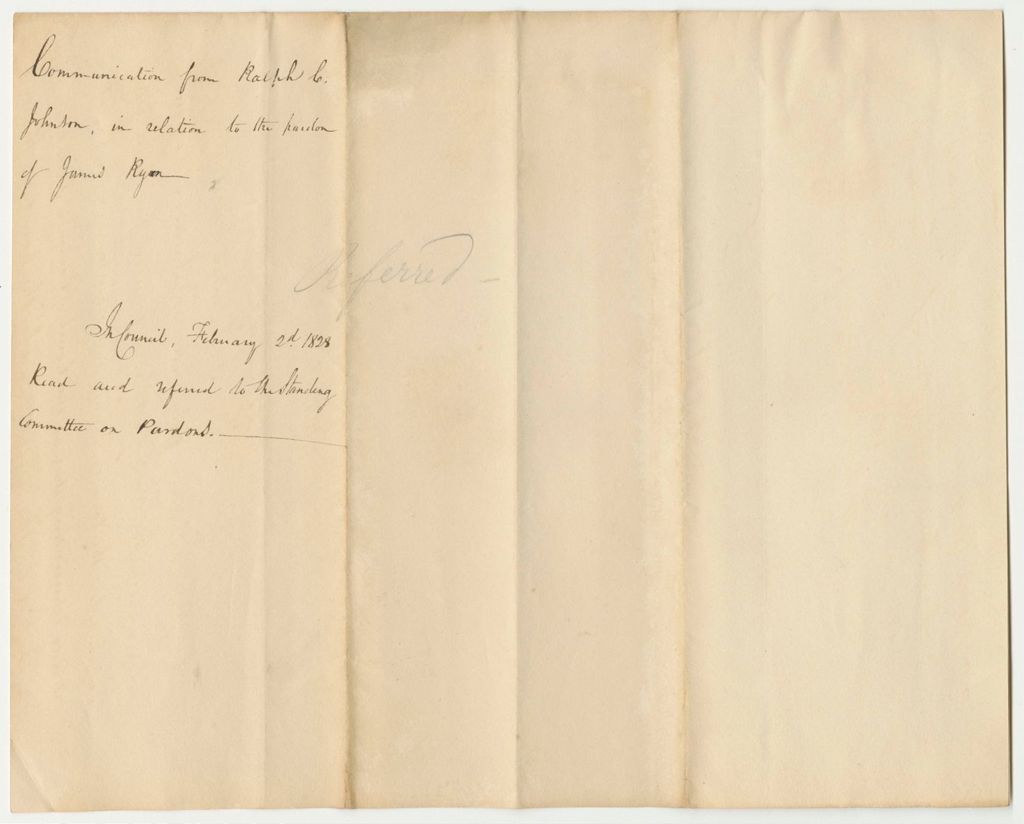 Communication from Ralph C.
Johnson, in relation to the pardon
of James Ryan
Referred -
In Council, February 2d. 1828
Read and referred to the Standing
Committee on Pardons.